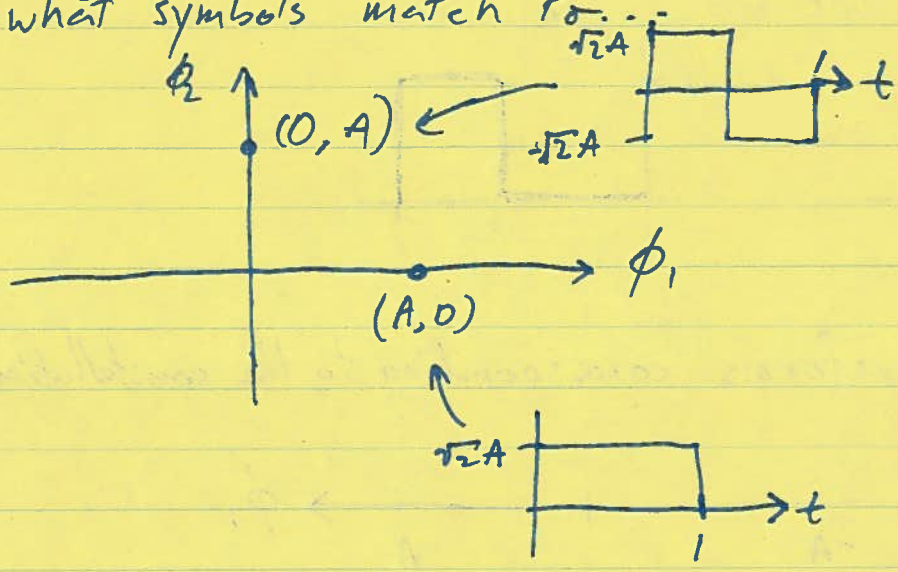 what symbols match
√2A
t
ϕ2
(0, A)
-√2A
1
ϕ1
(A, 0)
√2A
t
1